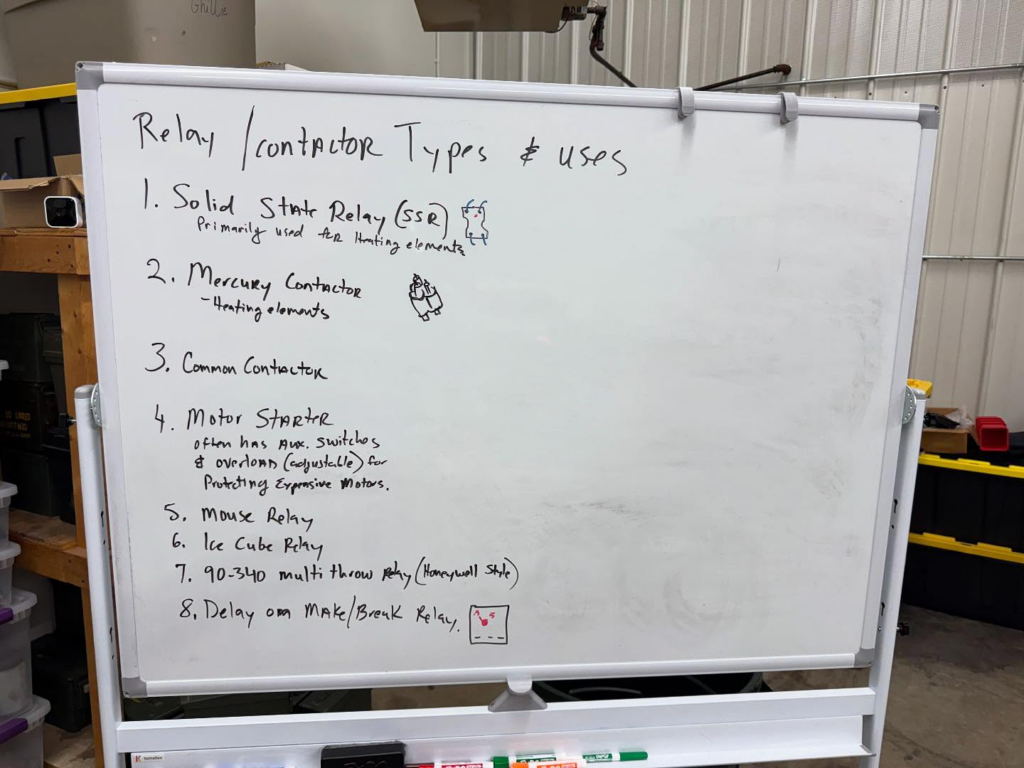 Ghillie
Relay / Contactor Types & uses
1. Solid State Relay (SSR)
Primarily used for Heating elements
2. Mercury Contactor
- Heating elements
3. Common Contactor
4. Motor Starter
often has Aux. switches
& overload (adjustable) for
Protecting Expensive Motors.
5. Mouse Relay
6. Ice Cube Relay
7. 90-340 multi throw relay (Honeywell Style)
8. Delay on Make/Break Relay.